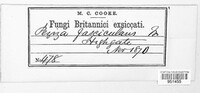 M. C. COOKE.
Fungi Britannici exsiccati.
Peziza fascicularis
Highgate
Nov 1870
No. 478